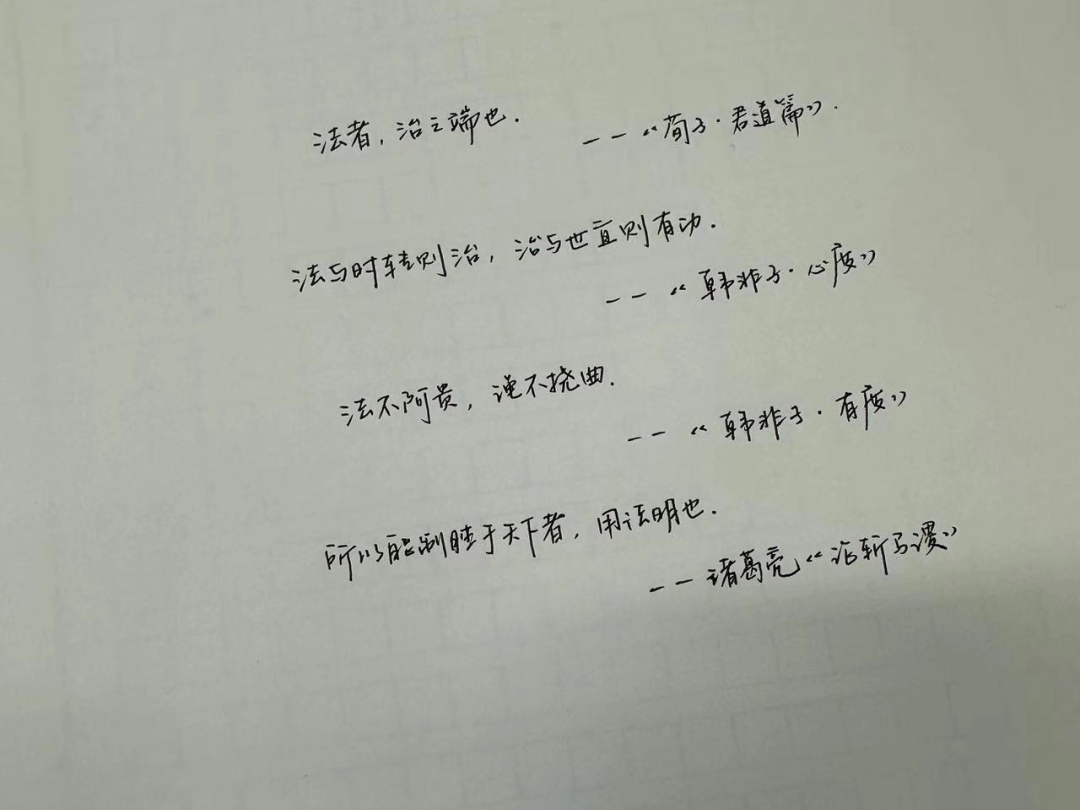 法者，治之端也.
——《荀子·君道篇》.
法与时转则治，治与世宜则有功.
——《韩非子·心度》
法不阿贵，绳不挠曲.
——《韩非子·有度》
所以能制胜于天下者，用法明也.
——诸葛亮《论斩马谡》